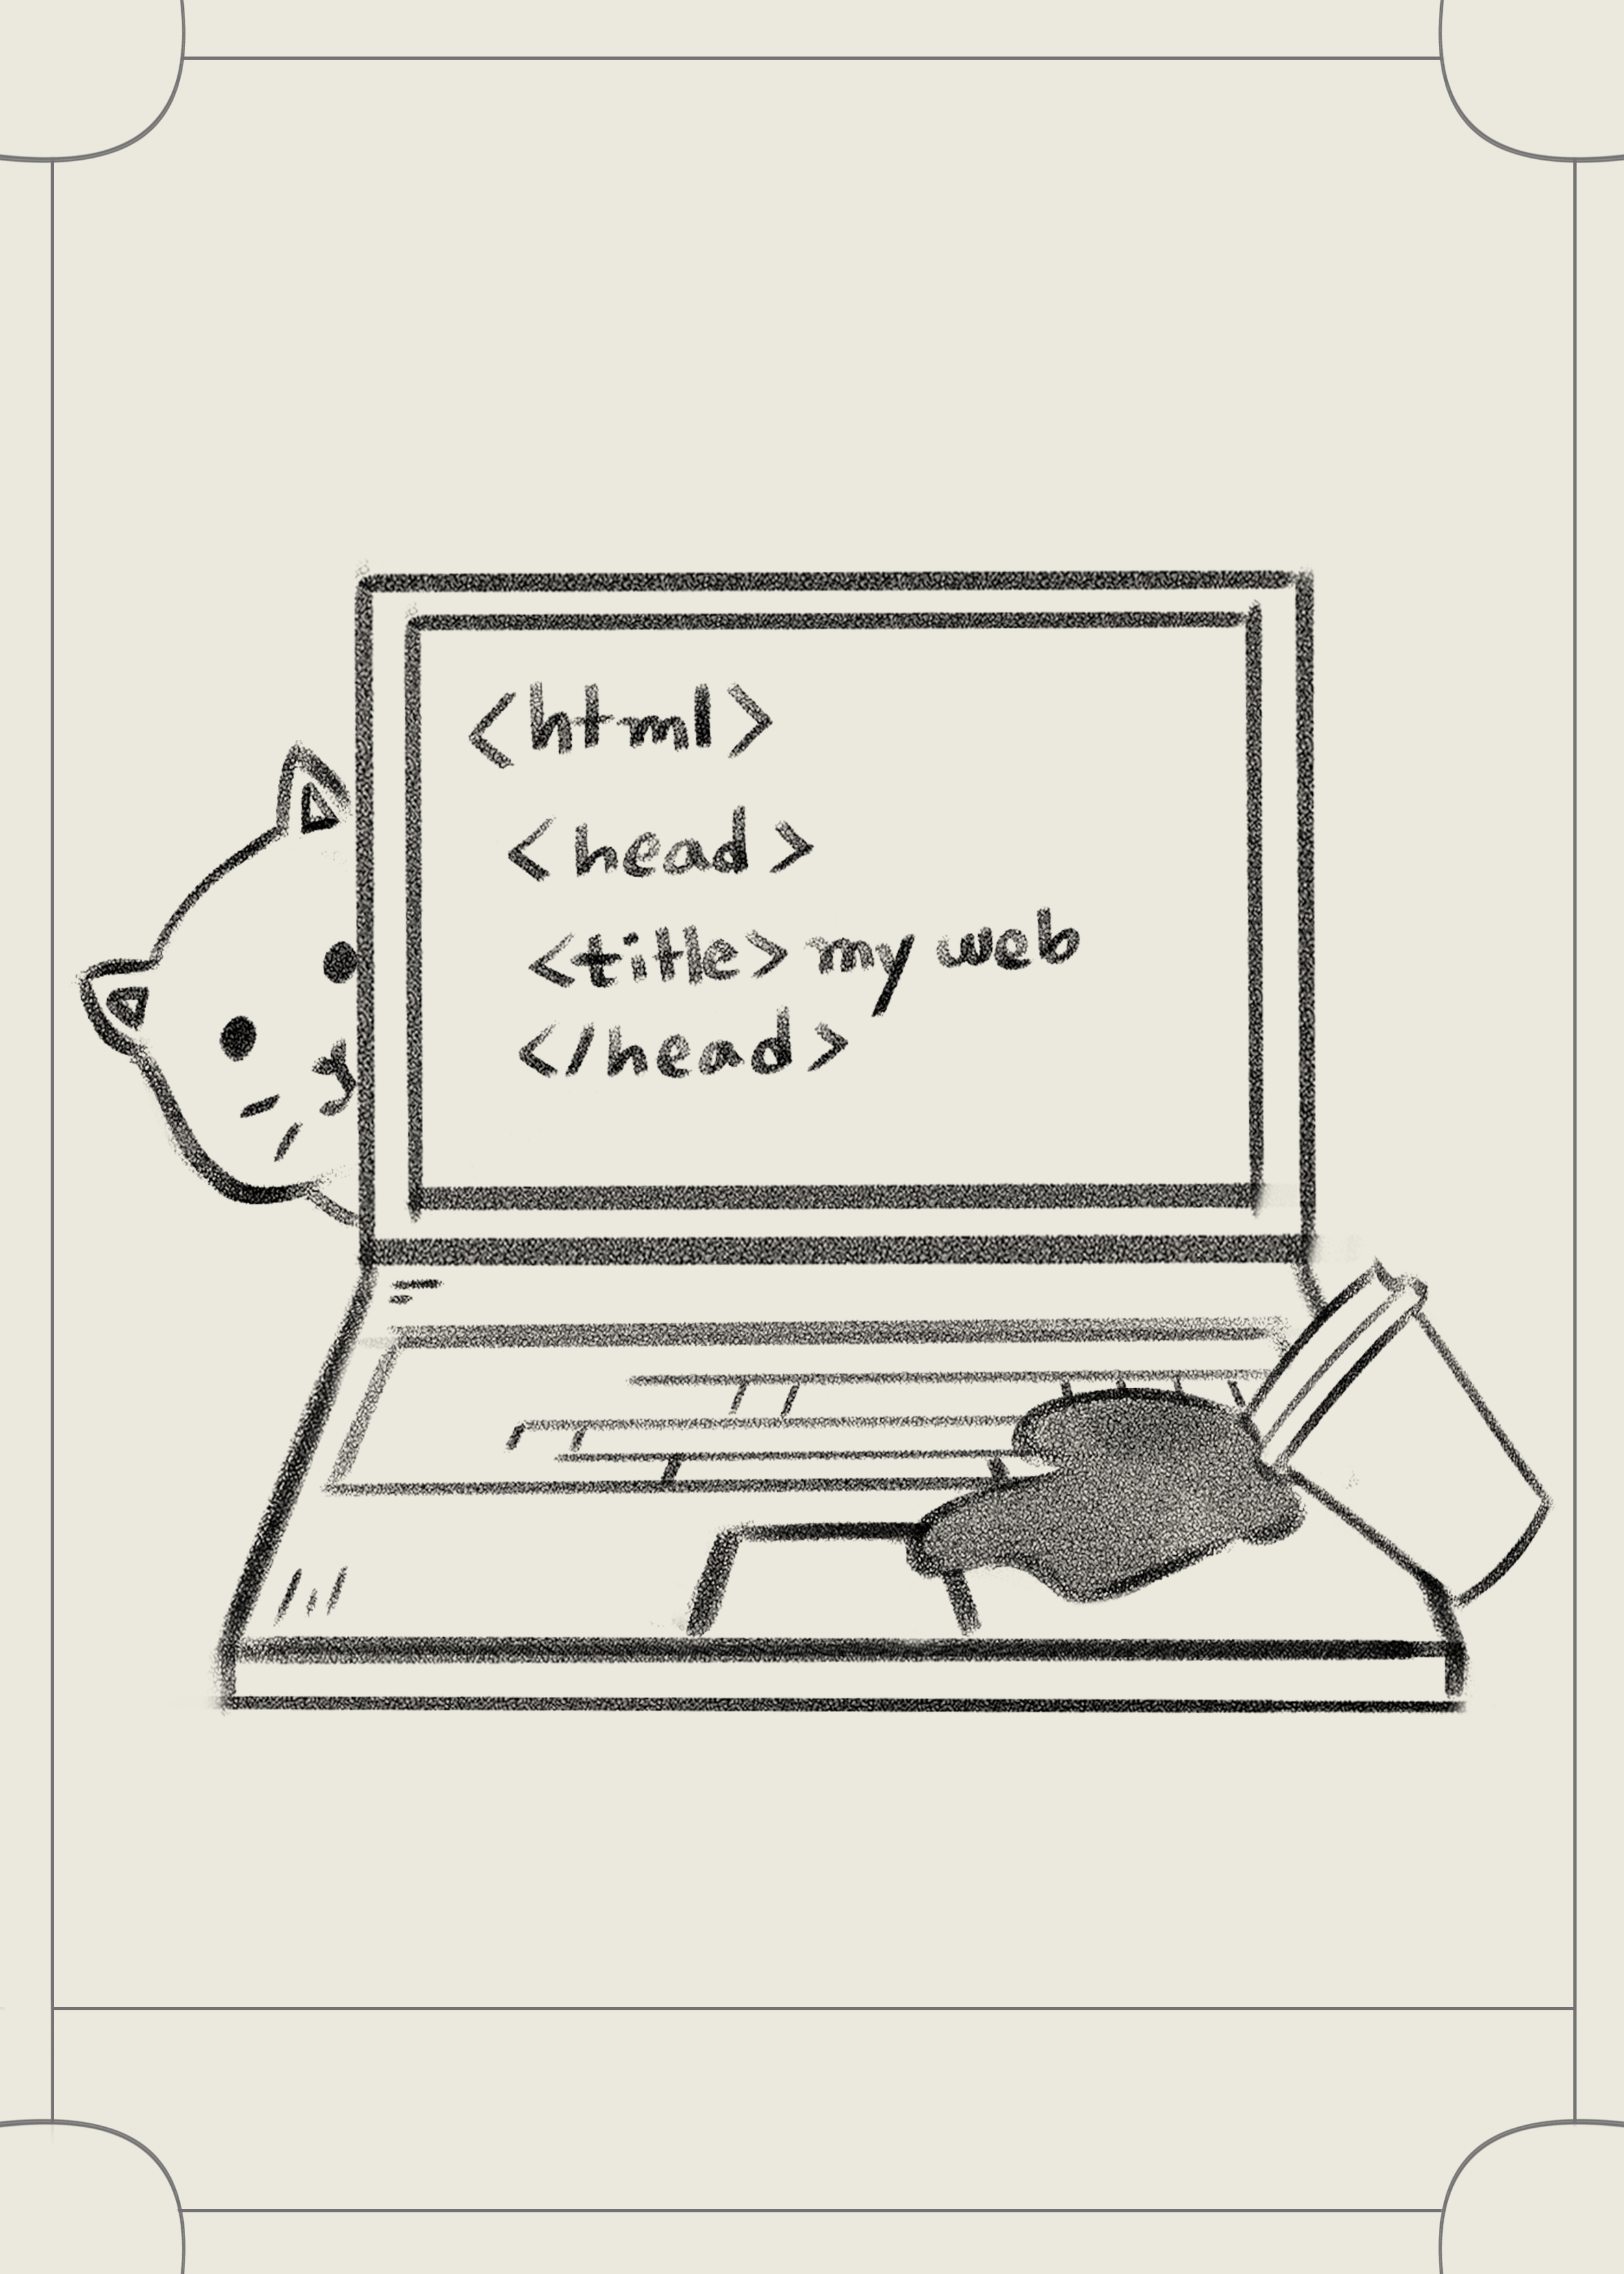 <html>
<head>
<title> my web
</head>